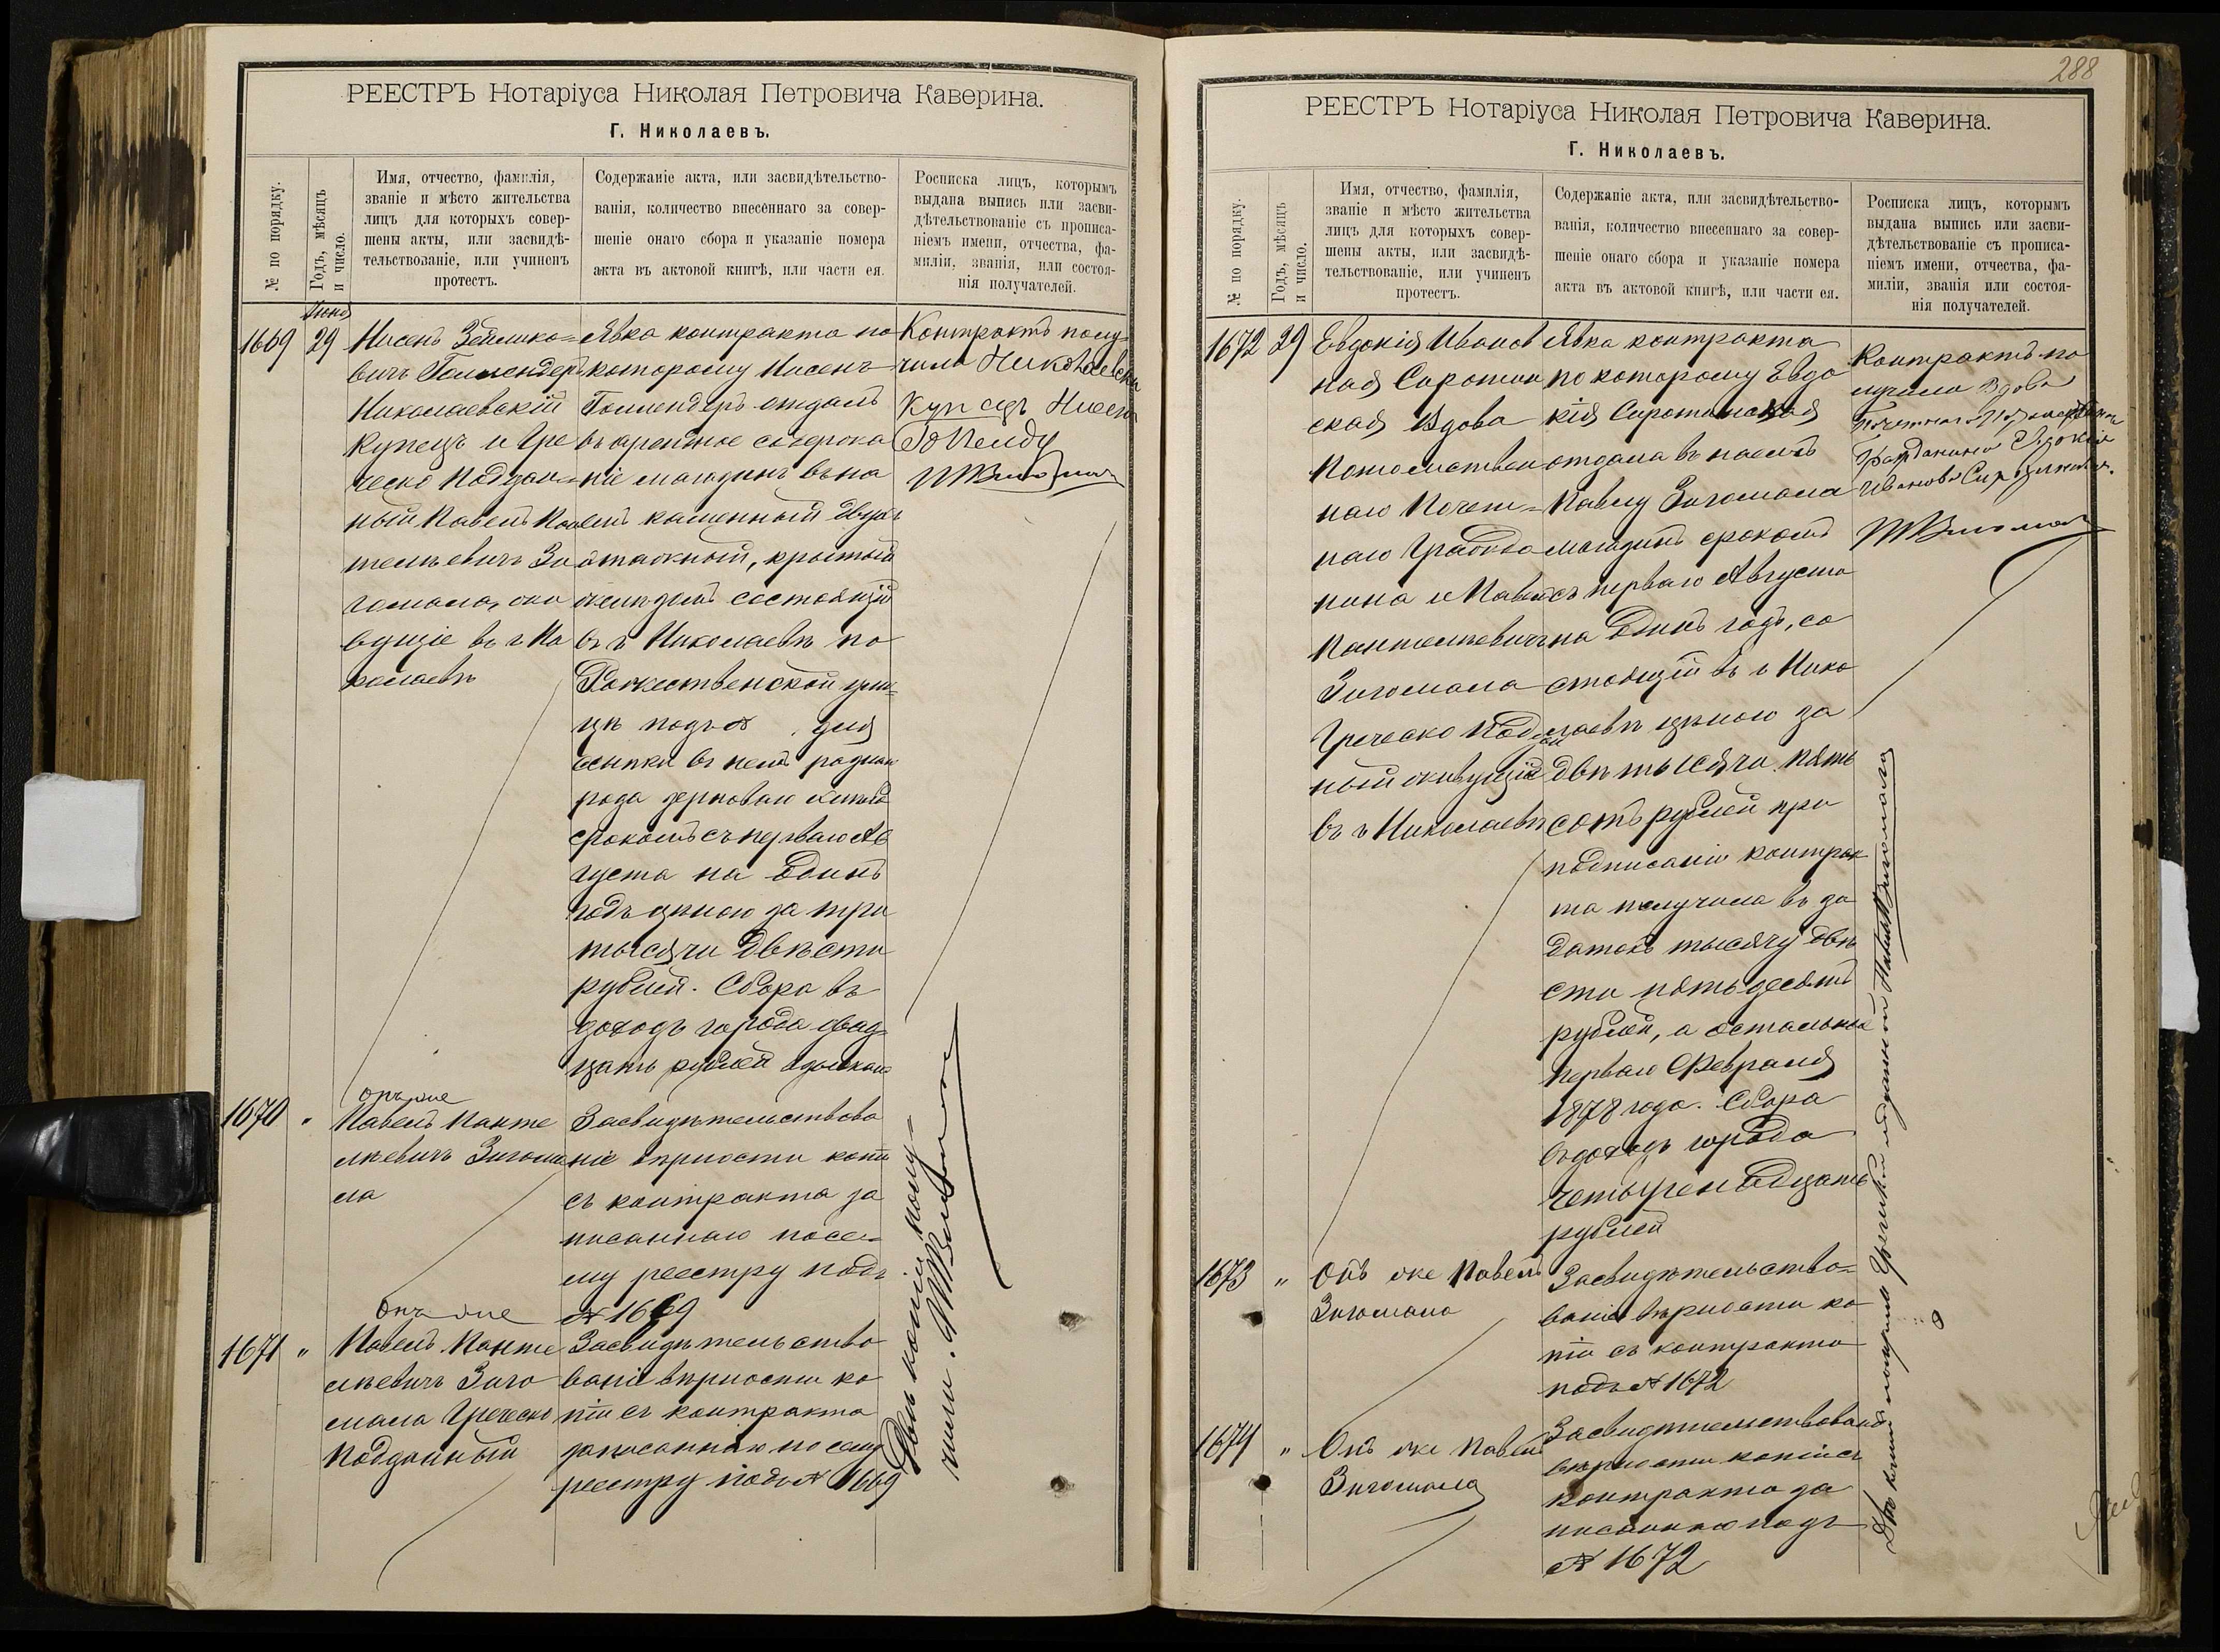 РЕЕСТРЪ Нотаріуса Николая Петровича Каверина.
Г. Николаевъ.
№ по порядку.
Годъ, мѣсяцъ
и число.
Имя, отчество, фамилія,
званіе и мѣсто жительства
лицъ для которыхъ совер-
шены акты, или засвидѣ-
тельствованіе, или учиненъ
протестъ.
Содержаніе акта, или засвидѣтельство-
ванія, количество внесеннаго за совер-
шеніе онаго сбора и указаніе номера
акта въ актовой книгѣ, или части ея.
Росписка лицъ, которымъ
выдана выпись или засви-
дѣтельствованіе съ прописа-
ніемъ имени, отчества, фа-
миліи, званія, или состоя-
нія получателей.
1669
29
Нисенъ Зейлико-
вичъ
Николаевскій
Купецъ и Гре
ческо Поддан-
ный Павелъ Пан
телѣевичъ Зи
гомала, жи
вущіе въ г Ни
колаевѣ
Явка контракта по
которому Нисенъ
отдалъ
въ арендное содержа
ніе магазинъ въ на
емъ каменный двух
этажный, крытый
состоящій
въ г Николаевѣ по
Рожественской ули-
цѣ подъ № для
ссыпки въ немъ разнаго
рода зерноваго хлѣба
срокомъ съ перваго Ав
густа на Одинъ
годъ цѣною за три
тысячи двѣсти
рублей. Сбора въ
доходъ города двад
цать рублей
Контрактъ полу-
чилъ Николаевски
Купецъ Нисен
1670
"
Онъ же
Павелъ Панте
лѣевичъ Зигома
ла
Засвидѣтельствова
ніе вѣрности копіи
съ контракта за
писаннаго по се-
му реестру подъ
№ 1669
1671
"
Онъ же
Павелъ Панте
лѣевичъ Зиго
мала Греческо
Подданный
Засвидѣтельство
ваніе вѣрности ко
піи съ контракта
записаннаго по сему
реестру подъ № 1669
Двѣ копіи полу-
чилъ.
288
РЕЕСТРЪ Нотаріуса Николая Петровича Каверина.
Г. Николаевъ.
№ по порядку.
Годъ, мѣсяцъ
и число.
Имя, отчество, фамилія,
званіе и мѣсто жительства
лицъ для которыхъ совер-
шены акты, или засвидѣ-
тельствованіе, или учиненъ
протестъ.
Содержаніе акта, или засвидѣтельство-
ванія, количество внесеннаго за совер-
шеніе онаго сбора и указаніе номера
акта въ актовой книгѣ, или части ея.
Росписка лицъ, которымъ
выдана выпись или засви-
дѣтельствованіе съ прописа-
ніемъ имени, отчества, фа-
миліи, званія или состоя-
нія получателей.
1672
29
Евдокія Иванов
ная Сиротин
ская Вдова
Потомствен
наго Почет-
наго Гражда
нина и Павелъ
Пантелѣевичъ
Зигомала
Греческо Поддан
ный живущій
въ г Николаевѣ
Явка контракта
по которому Евдо
кія Сиротинская
отдала въ наемъ
Павлу Зигомала
магазинъ срокомъ
съ перваго Августа
на Одинъ годъ, со
стоящій въ г Нико
лаевѣ цѣною за
двѣ тысячи пять
сотъ рублей при
подписаніи контрак
та получила въ за
датокъ тысячу двѣ
сти пятьдесятъ
рублей, а остальные
перваго Февраля
1878 года. Сбора
въ доходъ города
четырнадцать
рублей
Контрактъ по
лучила вдова
Гражданина Евдокія
Иванова
1673
"
Онъ же Павелъ
Зигомала
Засвидѣтельство-
ваніе вѣрности ко
піи съ контракта
подъ № 1672
1674
"
Онъ же Павелъ
Зигомала
Засвидѣтельствованіе
вѣрности копіи съ
контракта за
писаннаго подъ
№ 1672
Двѣ копіи получилъ Греческій подданный Павелъ Зигомала